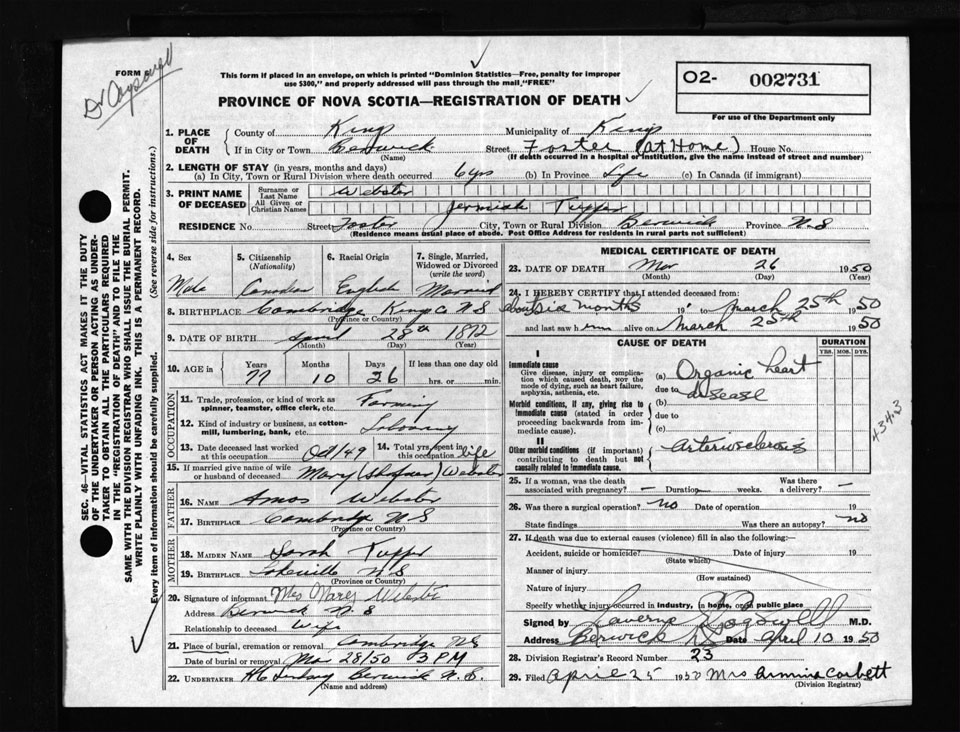 FORM
Dr Cogswell
This form if placed in an envelope, on which is printed "Dominion Statistics—Free, penalty for improper
use $300," and properly addressed will pass through the mail "FREE"
O2- 002731
For use of the Department only
PROVINCE OF NOVA SCOTIA—REGISTRATION OF DEATH
SEC. 46—VITAL STATISTICS ACT MAKES IT THE DUTY
OF THE UNDERTAKER OR PERSON ACTING AS UNDER-
TAKER TO OBTAIN ALL THE PARTICULARS REQUIRED
IN THE "REGISTRATION OF DEATH" AND TO FILE THE
SAME WITH THE DIVISION REGISTRAR WHO SHALL ISSUE THE BURIAL PERMIT.
WRITE PLAINLY WITH UNFADING INK. THIS IS A PERMANENT RECORD.
Every item of information should be carefully supplied. (See reverse side for instructions.)
1. PLACE OF DEATH County of Kings Municipality of Kings
If in City or Town Berwick Street Foster (at Home) House No.
(Name) (If death occurred in a hospital or institution, give the name instead of street and number)
2. LENGTH OF STAY (in years, months and days)
(a) In City, Town or Rural Division where death occurred 6 yrs (b) In Province Life (c) In Canada (if immigrant)
3. PRINT NAME OF DECEASED Surname or Last Name Webster
All Given or Christian Names Jermiah Tupper
RESIDENCE No. Street Foster City, Town or Rural Division Berwick Province N.S
(Residence means usual place of abode. Post Office Address for residents in rural parts not sufficient)
4. Sex 5. Citizenship (Nationality) 6. Racial Origin 7. Single, Married, Widowed or Divorced (write the word)
Male Canadian English Married
8. BIRTHPLACE Cambridge Kings Co N S
(Province or Country)
9. DATE OF BIRTH April 28th 1872
(Month) (Day) (Year)
10. AGE in Years Months Days If less than one day old
77 10 26 hrs. or min.
OCCUPATION
11. Trade, profession, or kind of work as spinner, teamster, office clerk, etc. Farming
12. Kind of industry or business, as cotton-mill, lumbering, bank, etc.
13. Date deceased last worked at this occupation Oct/49 14. Total yrs. spent in this occupation life
15. If married give name of wife or husband of deceased Mary (Shafner) Webster
FATHER
16. NAME Amos Webster
17. BIRTHPLACE Cambridge N S
(Province or Country)
MOTHER
18. MAIDEN NAME Sarah Tupper
19. BIRTHPLACE Lakeville N S
(Province or Country)
20. Signature of informant Mrs Mary Webster
Address Berwick N. S
Relationship to deceased Wife
21. Place of burial, cremation or removal Cambridge NS
Date of burial or removal Mar 28/50 3 PM
22. UNDERTAKER Lindsay Berwick N. S.
(Name and address)
MEDICAL CERTIFICATE OF DEATH
23. DATE OF DEATH Mar 26 1950
(Month) (Day) (Year)
24. I HEREBY CERTIFY that I attended deceased from:
about six months 19 to March 25th 1950
and last saw him alive on March 25th 1950
CAUSE OF DEATH DURATION
YRS. MOS. DYS.
I
Immediate cause
Give disease, injury or complication which caused death, NOT the mode of dying, such as heart failure, asphyxia, asthenia, etc.
(a) Organic heart
due to disease
Morbid conditions, if any, giving rise to immediate cause (stated in order proceeding backwards from immediate cause).
(b)
due to
(c)
4343
II
Other morbid conditions (if important) contributing to death but not causally related to immediate cause.
Arteriosclerosis
25. If a woman, was the death associated with pregnancy? — Duration weeks. Was there a delivery? —
26. Was there a surgical operation? no Date of operation 19
State findings Was there an autopsy? no
27. If death was due to external causes (violence) fill in also the following:—
Accident, suicide or homicide? Date of injury 19
(State which)
Manner of injury
(How sustained)
Nature of injury
Specify whether injury occurred in industry, in home, or on public place
Signed by Laverne Cogswell M.D.
Address Berwick NS Date April 10 1950
28. Division Registrar's Record Number 23
29. Filed April 25 1950 Mrs Armina Corbett
(Division Registrar)